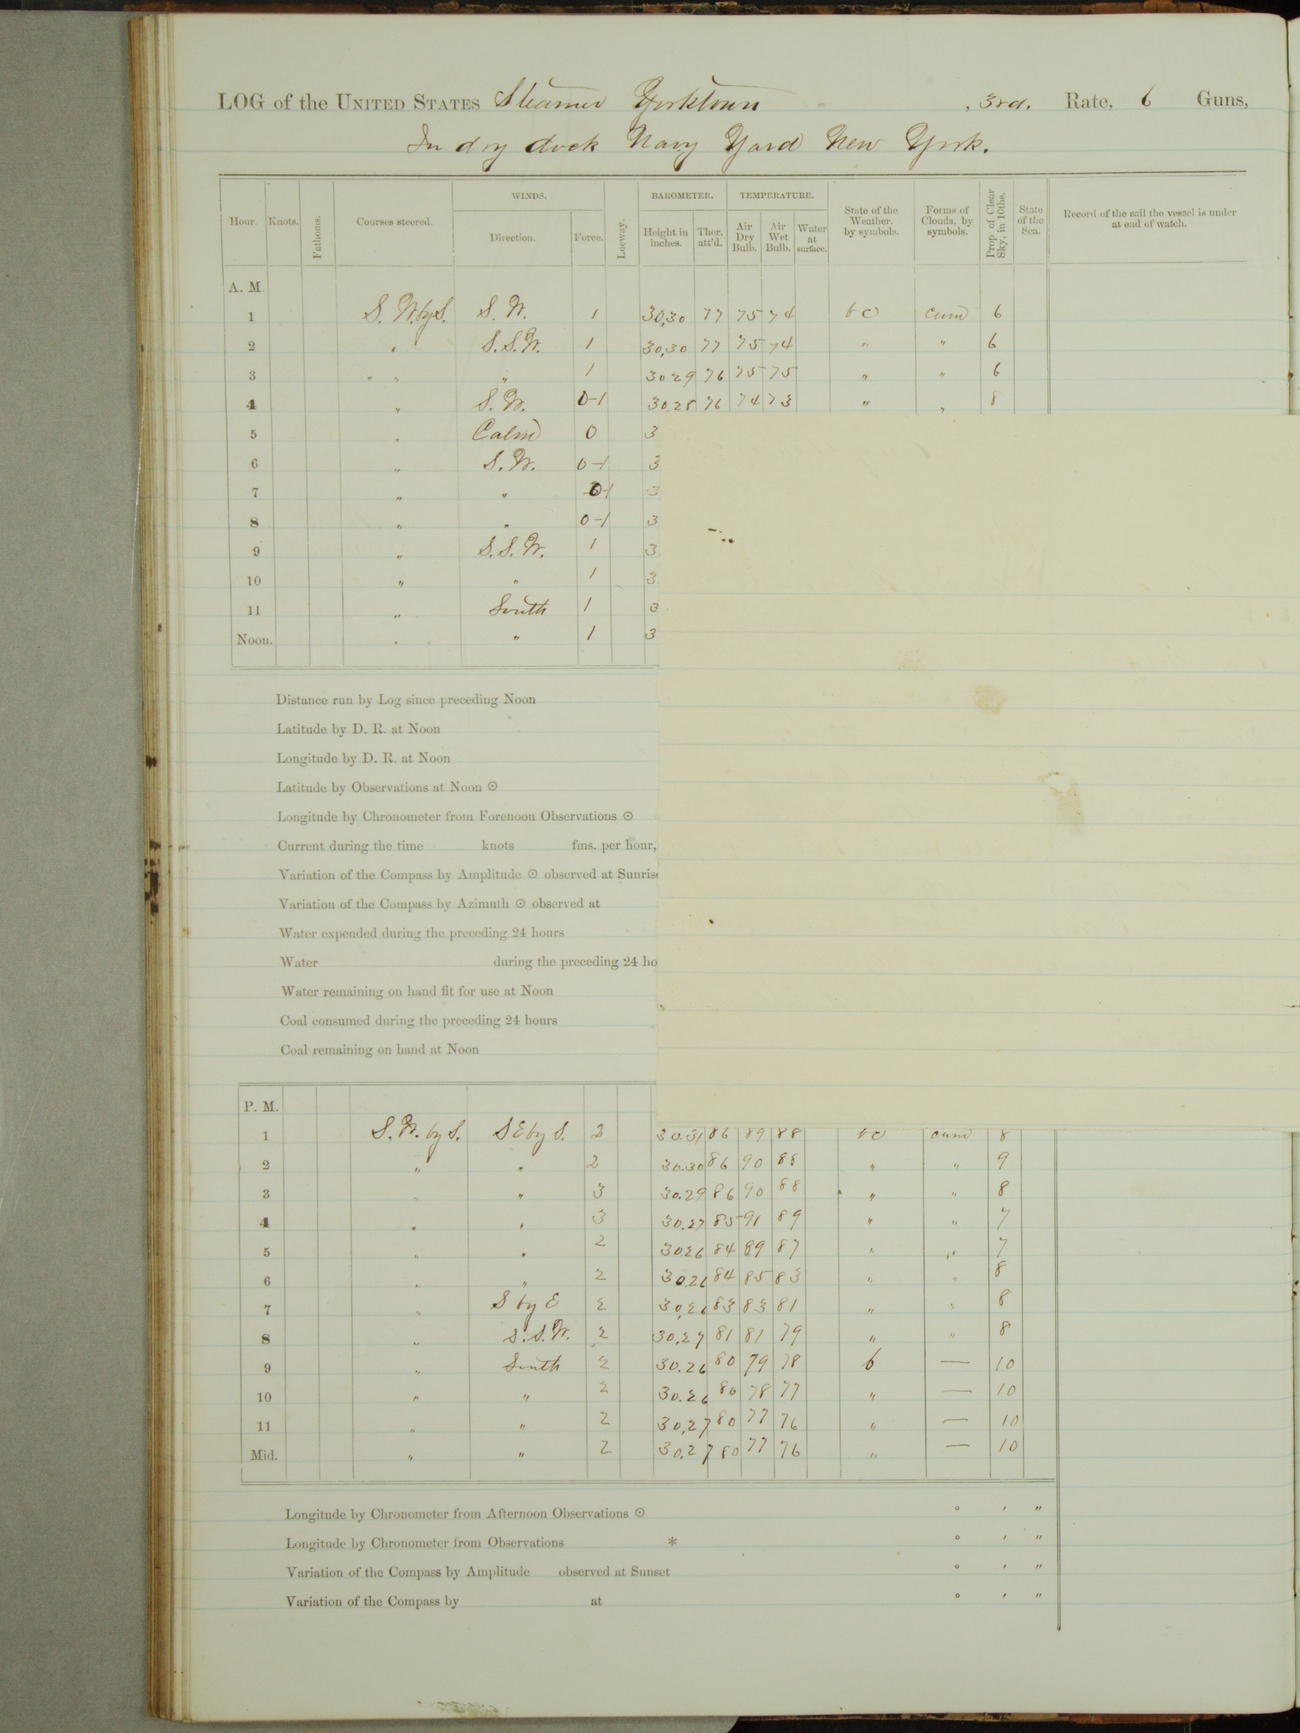 LOG of the UNITED STATES Steamer Yorktown , 3rd. Rate, 6 Guns,
In dry dock Navy Yard New York.
Hour. Knots. Fathoms. Courses steered. WINDS. Direction. Force. Leeway. BAROMETER. Height in inches. Ther. att'd. TEMPERATURE. Air Dry Bulb. Air Wet Bulb. Water at surface. State of the Weather. by symbols. Forms of Clouds, by symbols. Prop of Clear Sky, in 10ths. State of the Sea. Record of the sail the vessel is under at end of watch.
A. M.
1 S. W. by S. S. W. 1 30,30 77 75 74 bc cum 6
2 " S.S.W. 1 30,30 77 75 74 " " 6
3 " " " 1 30 29 76 75 75 " " 6
4 " S. W. 0-1 30.28 76 74 73 " " 8
5 " Calm 0 3
6 " S. W. 0-1 3
7 " " 0-1 3
8 " " 0-1 3
9 " S. S. W. 1 3
10 " " 1 3
11 " South 1 3
Noon. " " 1 3
Distance run by Log since preceding Noon
Latitude by D. R. at Noon
Longitude by D. R. at Noon
Latitude by Observations at Noon ⊙
Longitude by Chronometer from Forenoon Observations ⊙
Current during the time knots fms. per hour,
Variation of the Compass by Amplitude ⊙ observed at Sunrise
Variation of the Compass by Azimuth ⊙ observed at
Water expended during the preceding 24 hours
Water during the preceding 24 ho
Water remaining on hand fit for use at Noon
Coal consumed during the preceding 24 hours
Coal remaining on hand at Noon
P. M.
1 S. W. by S. S E by S. 2 30.31 86 89 88 bc cum 8
2 " " 2 30.30 86 90 88 " " 9
3 " " 3 30.29 86 90 88 " " 8
4 " " 3 30.27 85 91 89 " " 7
5 " " 2 30 26 84 89 87 " " 7
6 " " 2 30.26 84 85 83 " " 8
7 " S by E 2 30,26 83 83 81 " " 8
8 " S. S. W. 2 30,27 81 81 79 " " 8
9 " South 2 30.26 80 79 78 b — 10
10 " " 2 30.26 80 78 77 " — 10
11 " " 2 30,27 80 77 76 " — 10
Mid. " " 2 30.27 80 77 76 " — 10
Longitude by Chronometer from Afternoon Observations ⊙ ° ′ ″
Longitude by Chronometer from Observations * ° ′ ″
Variation of the Compass by Amplitude observed at Sunset ° ′ ″
Variation of the Compass by at ° ′ ″